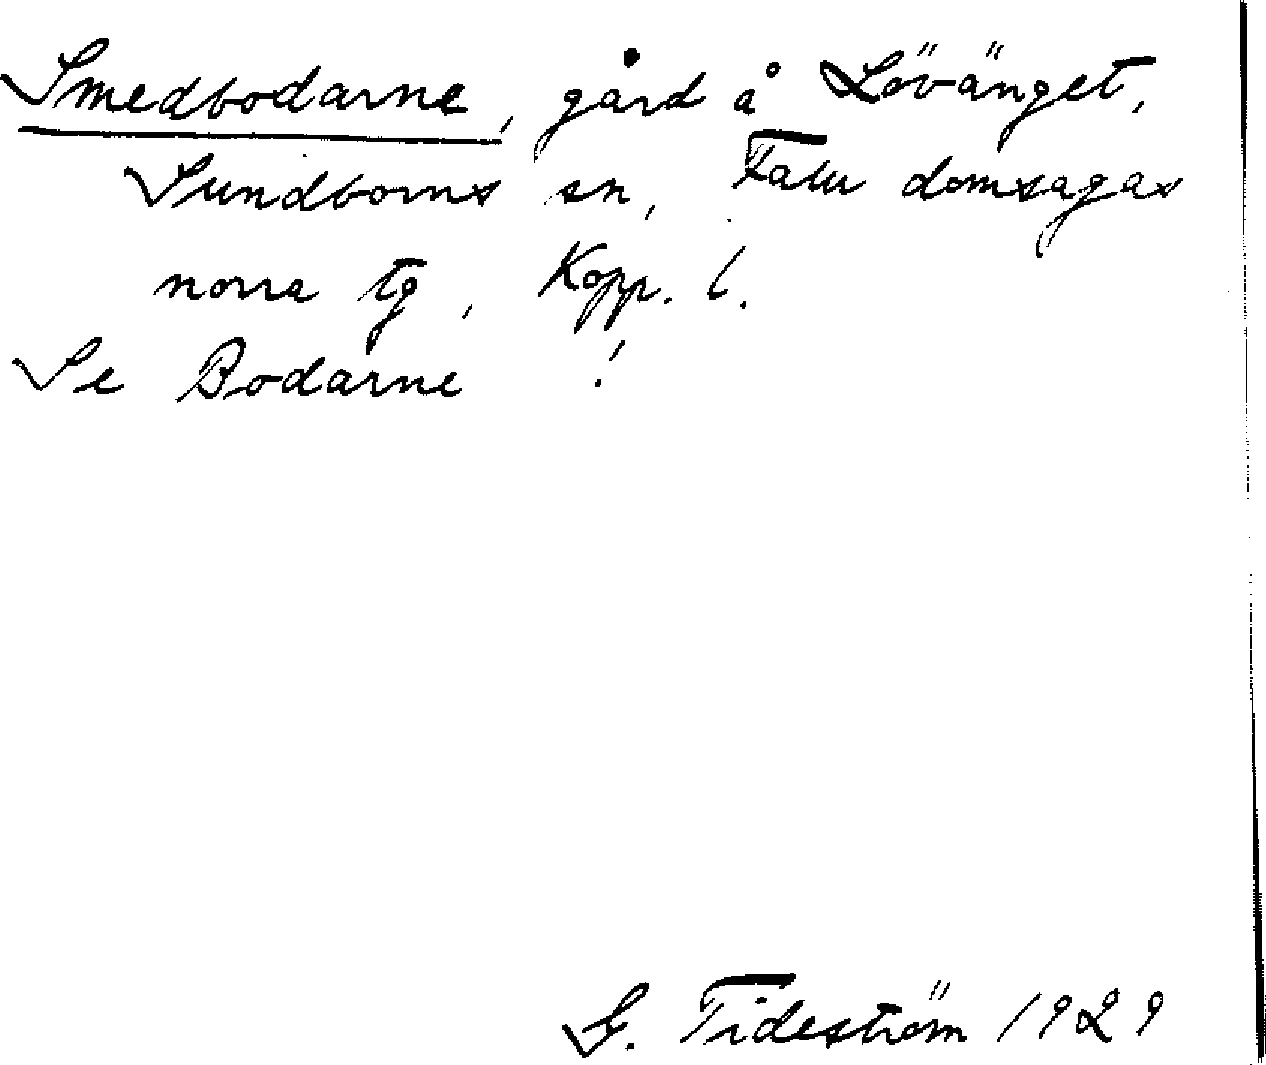 Smedbodarne, gård å Lövänget,
Sundborns sn, Falu domsagas
norra tg, Kopp. l.
Se Bodarne !
G. Tideström 1929